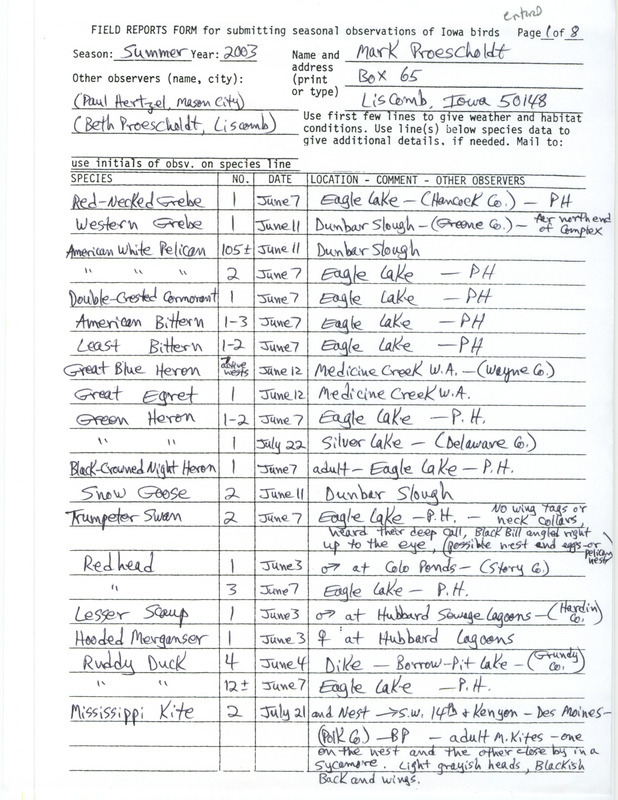 entered
FIELD REPORTS FORM for submitting seasonal observations of Iowa birds Page 1 of 8
Season: Summer Year: 2003
Name and address (print or type)
Mark Proescholdt
Box 65
Liscomb, Iowa 50148
Other observers (name, city):
(Paul Hertzel, Mason City)
(Beth Proescholdt, Liscomb)
Use first few lines to give weather and habitat
conditions. Use line(s) below species data to
give additional details, if needed. Mail to:
use initials of obsv. on species line
SPECIES NO. DATE LOCATION - COMMENT - OTHER OBSERVERS
Red-Necked Grebe 1 June 7 Eagle Lake - (Hancock Co.) - PH
Western Grebe 1 June 11 Dunbar Slough - (Greene Co.) - far north end
of complex
American White Pelican 105± June 11 Dunbar Slough
" " " 2 June 7 Eagle Lake - PH
Double-Crested Cormorant 1 June 7 Eagle Lake - PH
American Bittern 1-3 June 7 Eagle Lake - PH
Least Bittern 1-2 June 7 Eagle Lake - PH
Great Blue Heron 7 active nests June 12 Medicine Creek W.A. - (Wayne Co.)
Great Egret 1 June 12 Medicine Creek W.A.
Green Heron 1-2 June 7 Eagle Lake - P.H.
" " 1 July 22 Silver Lake - (Delaware Co.)
Black-Crowned Night Heron 1 June 7 adult - Eagle Lake - P.H.
Snow Goose 2 June 11 Dunbar Slough
Trumpeter Swan 2 June 7 Eagle Lake - P.H. - No wing tags or
neck collars,
heard their deep call, Black Bill angled right
up to the eye, (possible nest and eggs - or
pelican nest)
Redhead 1 June 3 ♂ at Colo Ponds - (Story Co.)
" 3 June 7 Eagle Lake - P.H.
Lesser Scaup 1 June 3 ♂ at Hubbard Sewage Lagoons - (Hardin Co.)
Hooded Merganser 1 June 3 ♀ at Hubbard Lagoons
Ruddy Duck 4 June 4 Dike - Borrow-Pit Lake - (Grundy Co.)
" " 12± June 7 Eagle Lake - P.H.
Mississippi Kite 2 July 21 and Nest → S.W. 14th & Kenyon - Des Moines -
(Polk Co) - BP - adult M. Kites - one
on the nest and the other close by in a
Sycamore. Light grayish heads, Blackish
Back and wings.